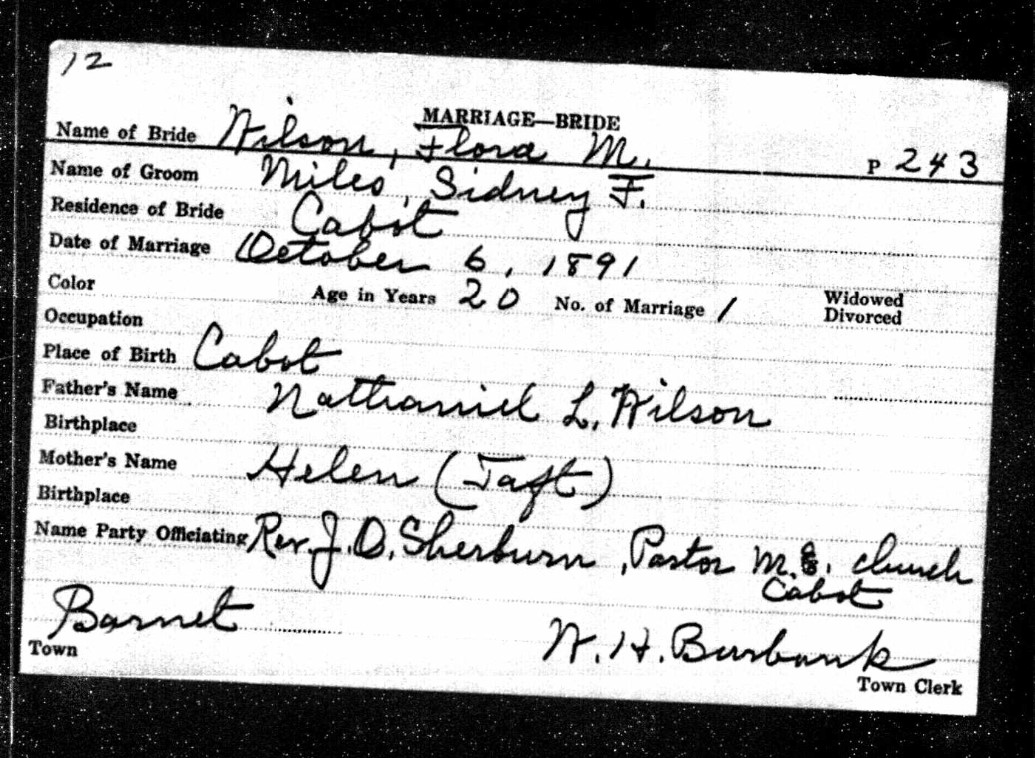 12
MARRIAGE—BRIDE
Name of Bride Wilson, Flora M. P 243
Name of Groom Miles, Sidney F.
Residence of Bride Cabot
Date of Marriage October 6, 1891
Color Age in Years 20 No. of Marriage 1 Widowed
Divorced
Occupation
Place of Birth Cabot
Father's Name Nathaniel L. Wilson
Birthplace
Mother's Name Helen (Taft)
Birthplace
Name Party Officiating Rev. J. O. Sherburn, Pastor M.E. church
Cabot
Barnet W. H. Burbank
Town Town Clerk